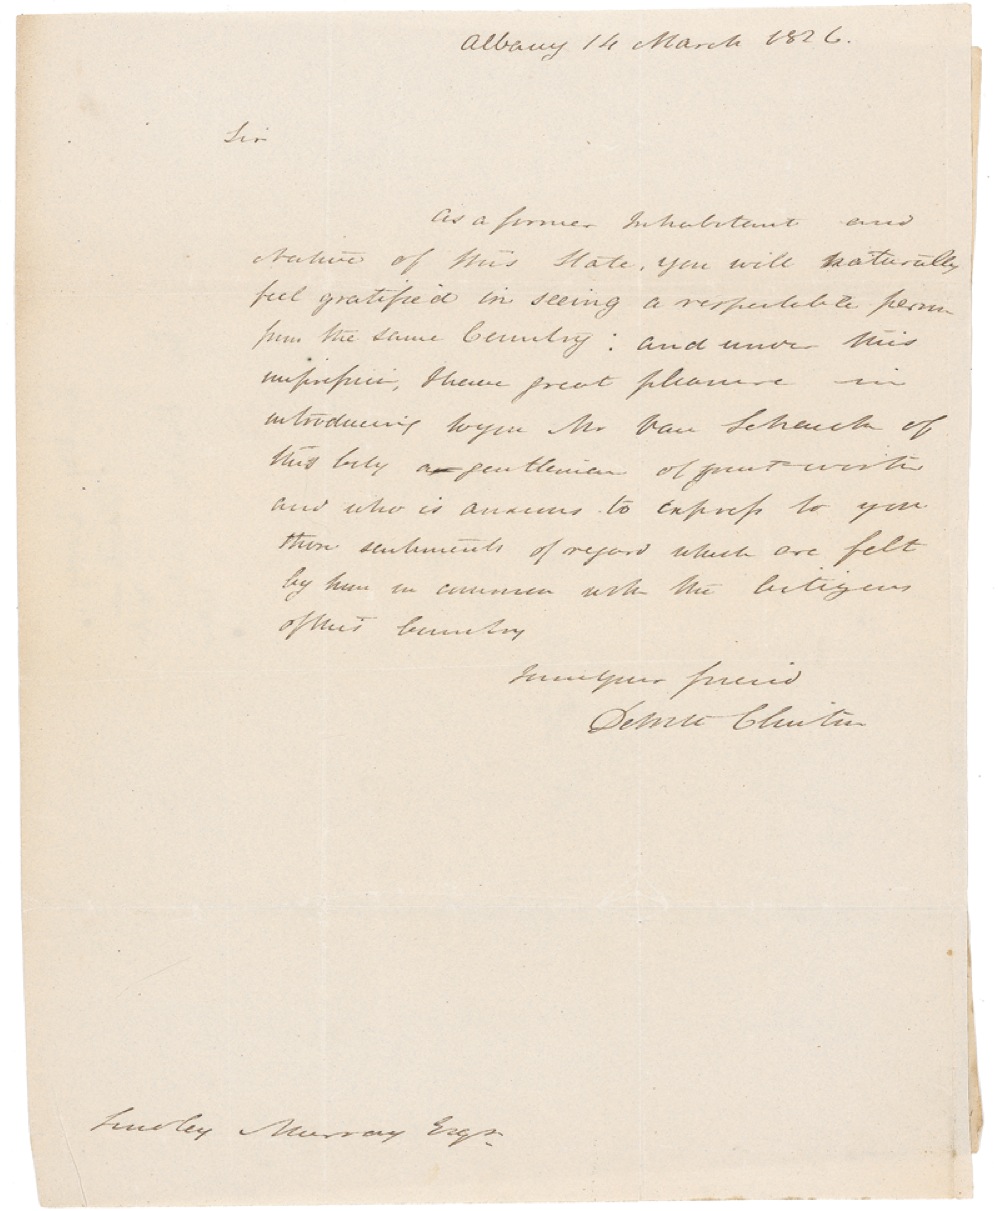 Albany 14 March 1826.
Sir
As a former Inhabitant and
Native of this State, you will naturally
feel gratified in seeing a respectable person
from the same Country: and under this
impression, I have great pleasure in
introducing to you Mr Van Schaick of
this City a gentleman of great worth
and who is anxious to express to you
those sentiments of regard which are felt
by him in common with the Citizens
of this Country
I am your friend
DeWitt Clinton
Lindley Murray Esqr